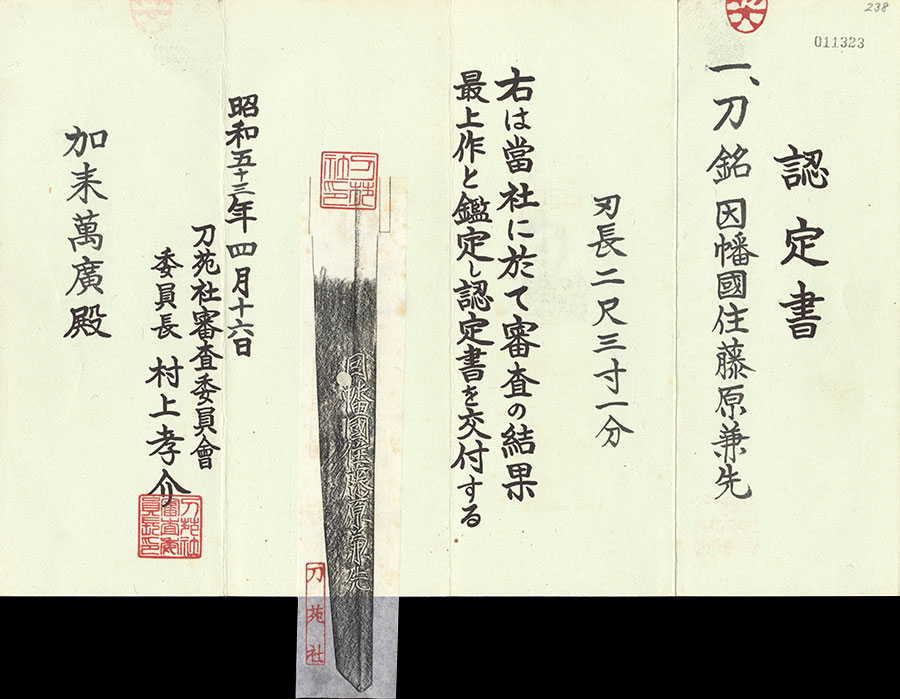 238
011323
認定書
一、刀 銘 因幡國住藤原兼先
刃長二尺三寸一分
右は當社に於て審査の結果
最上作と鑑定し認定書を交付する
刀苑社印
因幡國住藤原兼先
刀苑社
昭和五十三年四月十六日
刀苑社審査委員會
委員長 村上孝介
刀苑社審査委員長印
加来萬廣殿